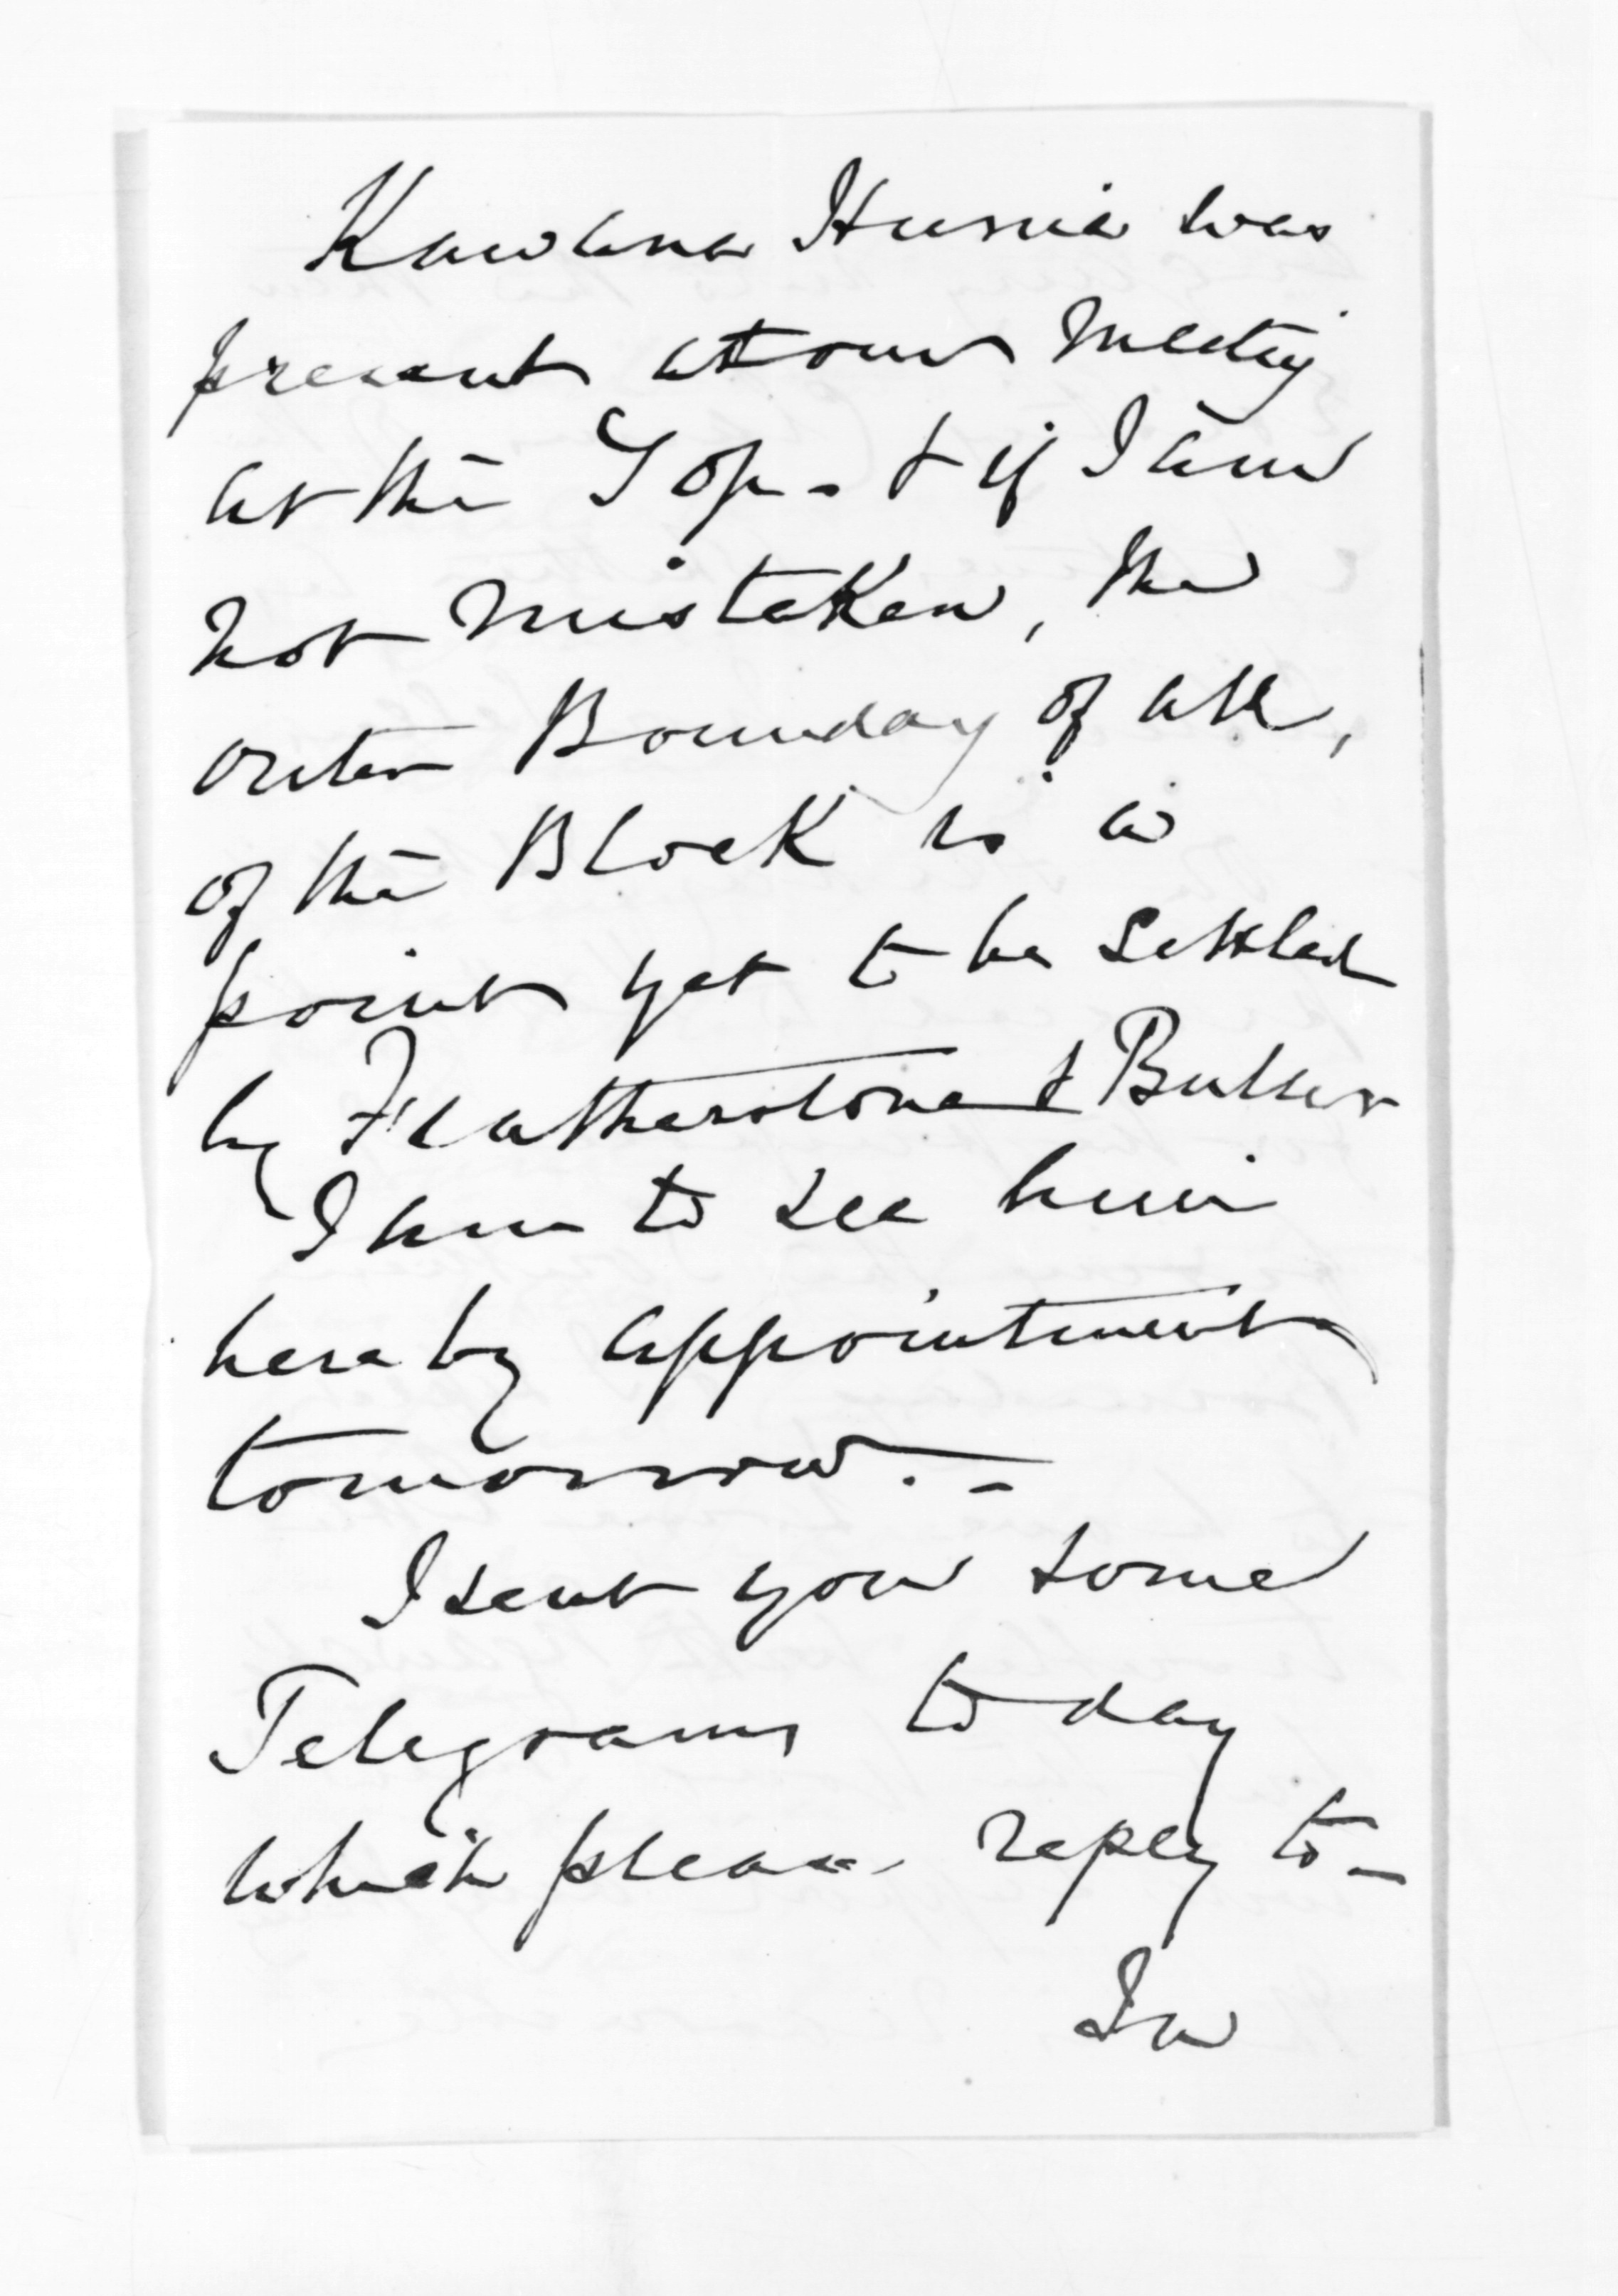 Kawana Hunia was
present at our Meeting
at the Top - & if I am
not mistaken, the
outer Bounday of all,
of the Block is a
point yet to be settled
by Featherstone & Buller
I am to see him
here by appointment
tomorrow. -
I sent you some
Telegrams to day
which please reply to -
In